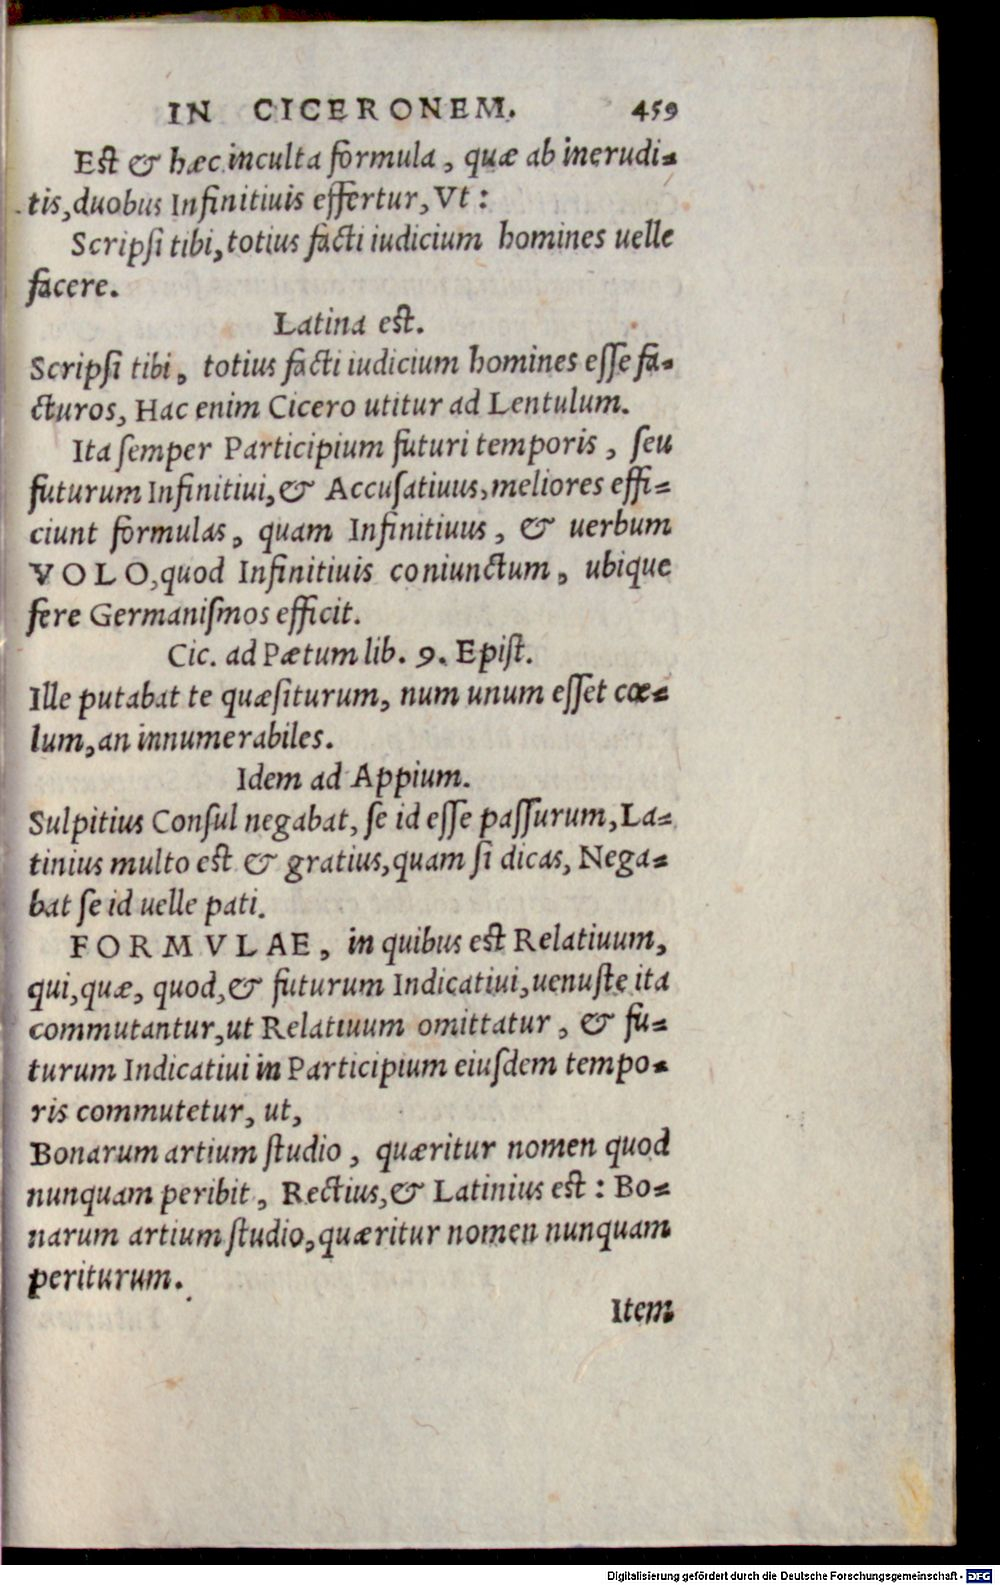 IN CICERONEM. 459
Est & hæc inculta formula, quæ ab inerudi-
tis, duobus Infinitiuis effertur, Vt:
Scripsi tibi, totius facti iudicium homines uelle
facere.
Latina est.
Scripsi tibi, totius facti iudicium homines esse fa-
cturos, Hac enim Cicero utitur ad Lentulum.
Ita semper Participium futuri temporis, seu
futurum Infinitiui, & Accusatiuus, meliores effi-
ciunt formulas, quam Infinitiuus, & uerbum
VOLO, quod Infinitiuis coniunctum, ubique
fere Germanismos efficit.
Cic. ad Pætum lib. 9. Epist.
Ille putabat te quæsiturum, num unum esset cœ-
lum, an innumerabiles.
Idem ad Appium.
Sulpitius Consul negabat, se id esse passurum, La-
tinius multo est & gratius, quam si dicas, Nega-
bat se id uelle pati.
FORMVLAE, in quibus est Relatiuum,
qui, quæ, quod, & futurum Indicatiui, uenuste ita
commutantur, ut Relatiuum omittatur, & fu-
turum Indicatiui in Participium eiusdem tempo-
ris commutetur, ut,
Bonarum artium studio, quæritur nomen quod
nunquam peribit, Rectius, & Latinius est: Bo-
narum artium studio, quæritur nomen nunquam
periturum.
Item
Digitalisierung gefördert durch die Deutsche Forschungsgemeinschaft - DFG